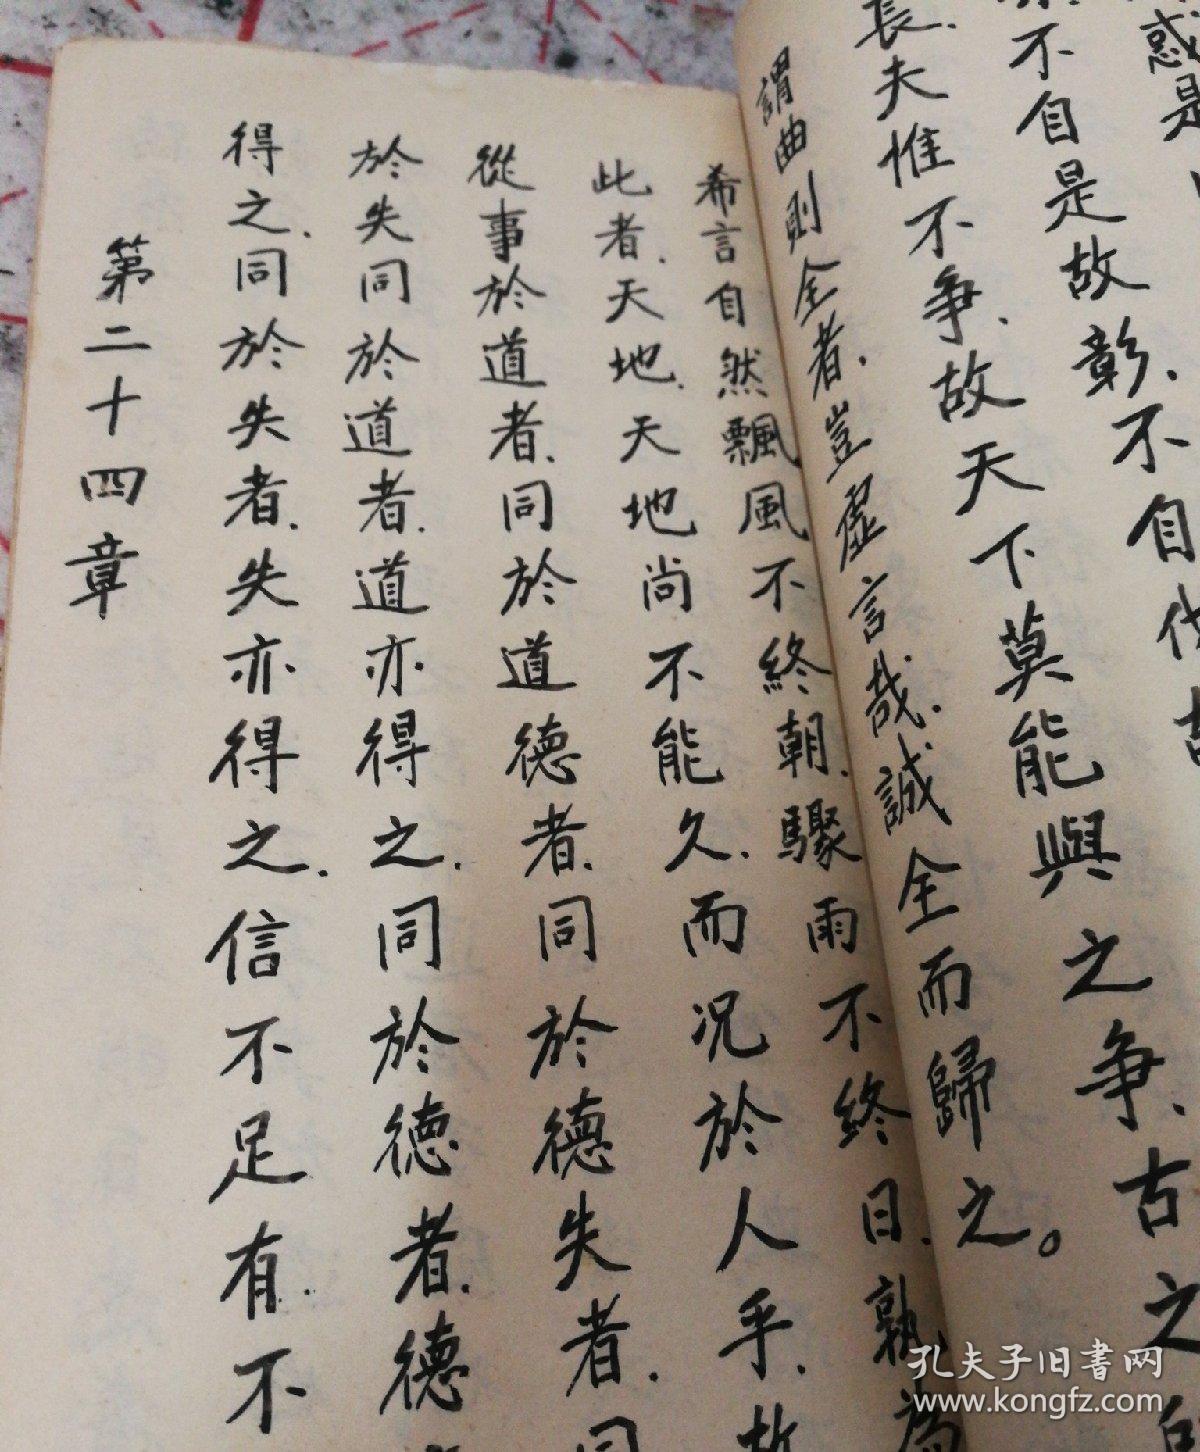 惑是
不自是故彰.不自伐故
長.夫惟不爭.故天下莫能與之爭.古之所
謂曲則全者.豈虛言哉.誠全而歸之。
希言自然飄風不終朝.驟雨不終日.孰為
此者.天地.天地尚不能久.而況於人乎.故
從事於道者.同於道德者.同於德失者.同
於失同於道者.道亦得之.同於德者.德
得之.同於失者.失亦得之.信不足有.不
第二十四章
孔夫子旧書网
www.kongfz.com